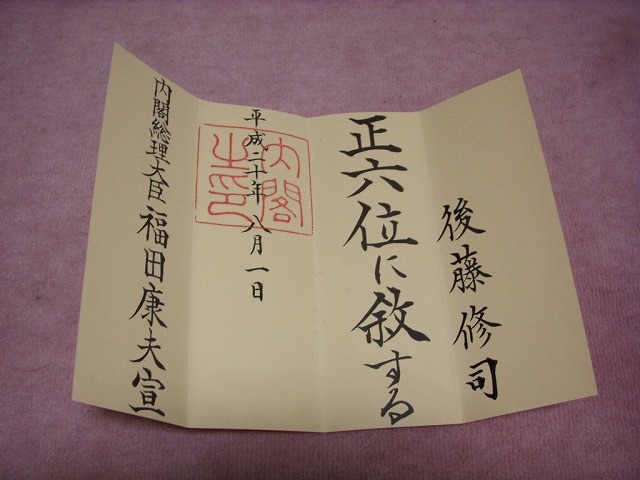 後藤修司
正六位に敘する
平成二十年八月一日
内閣之印
内閣総理大臣福田康夫宣